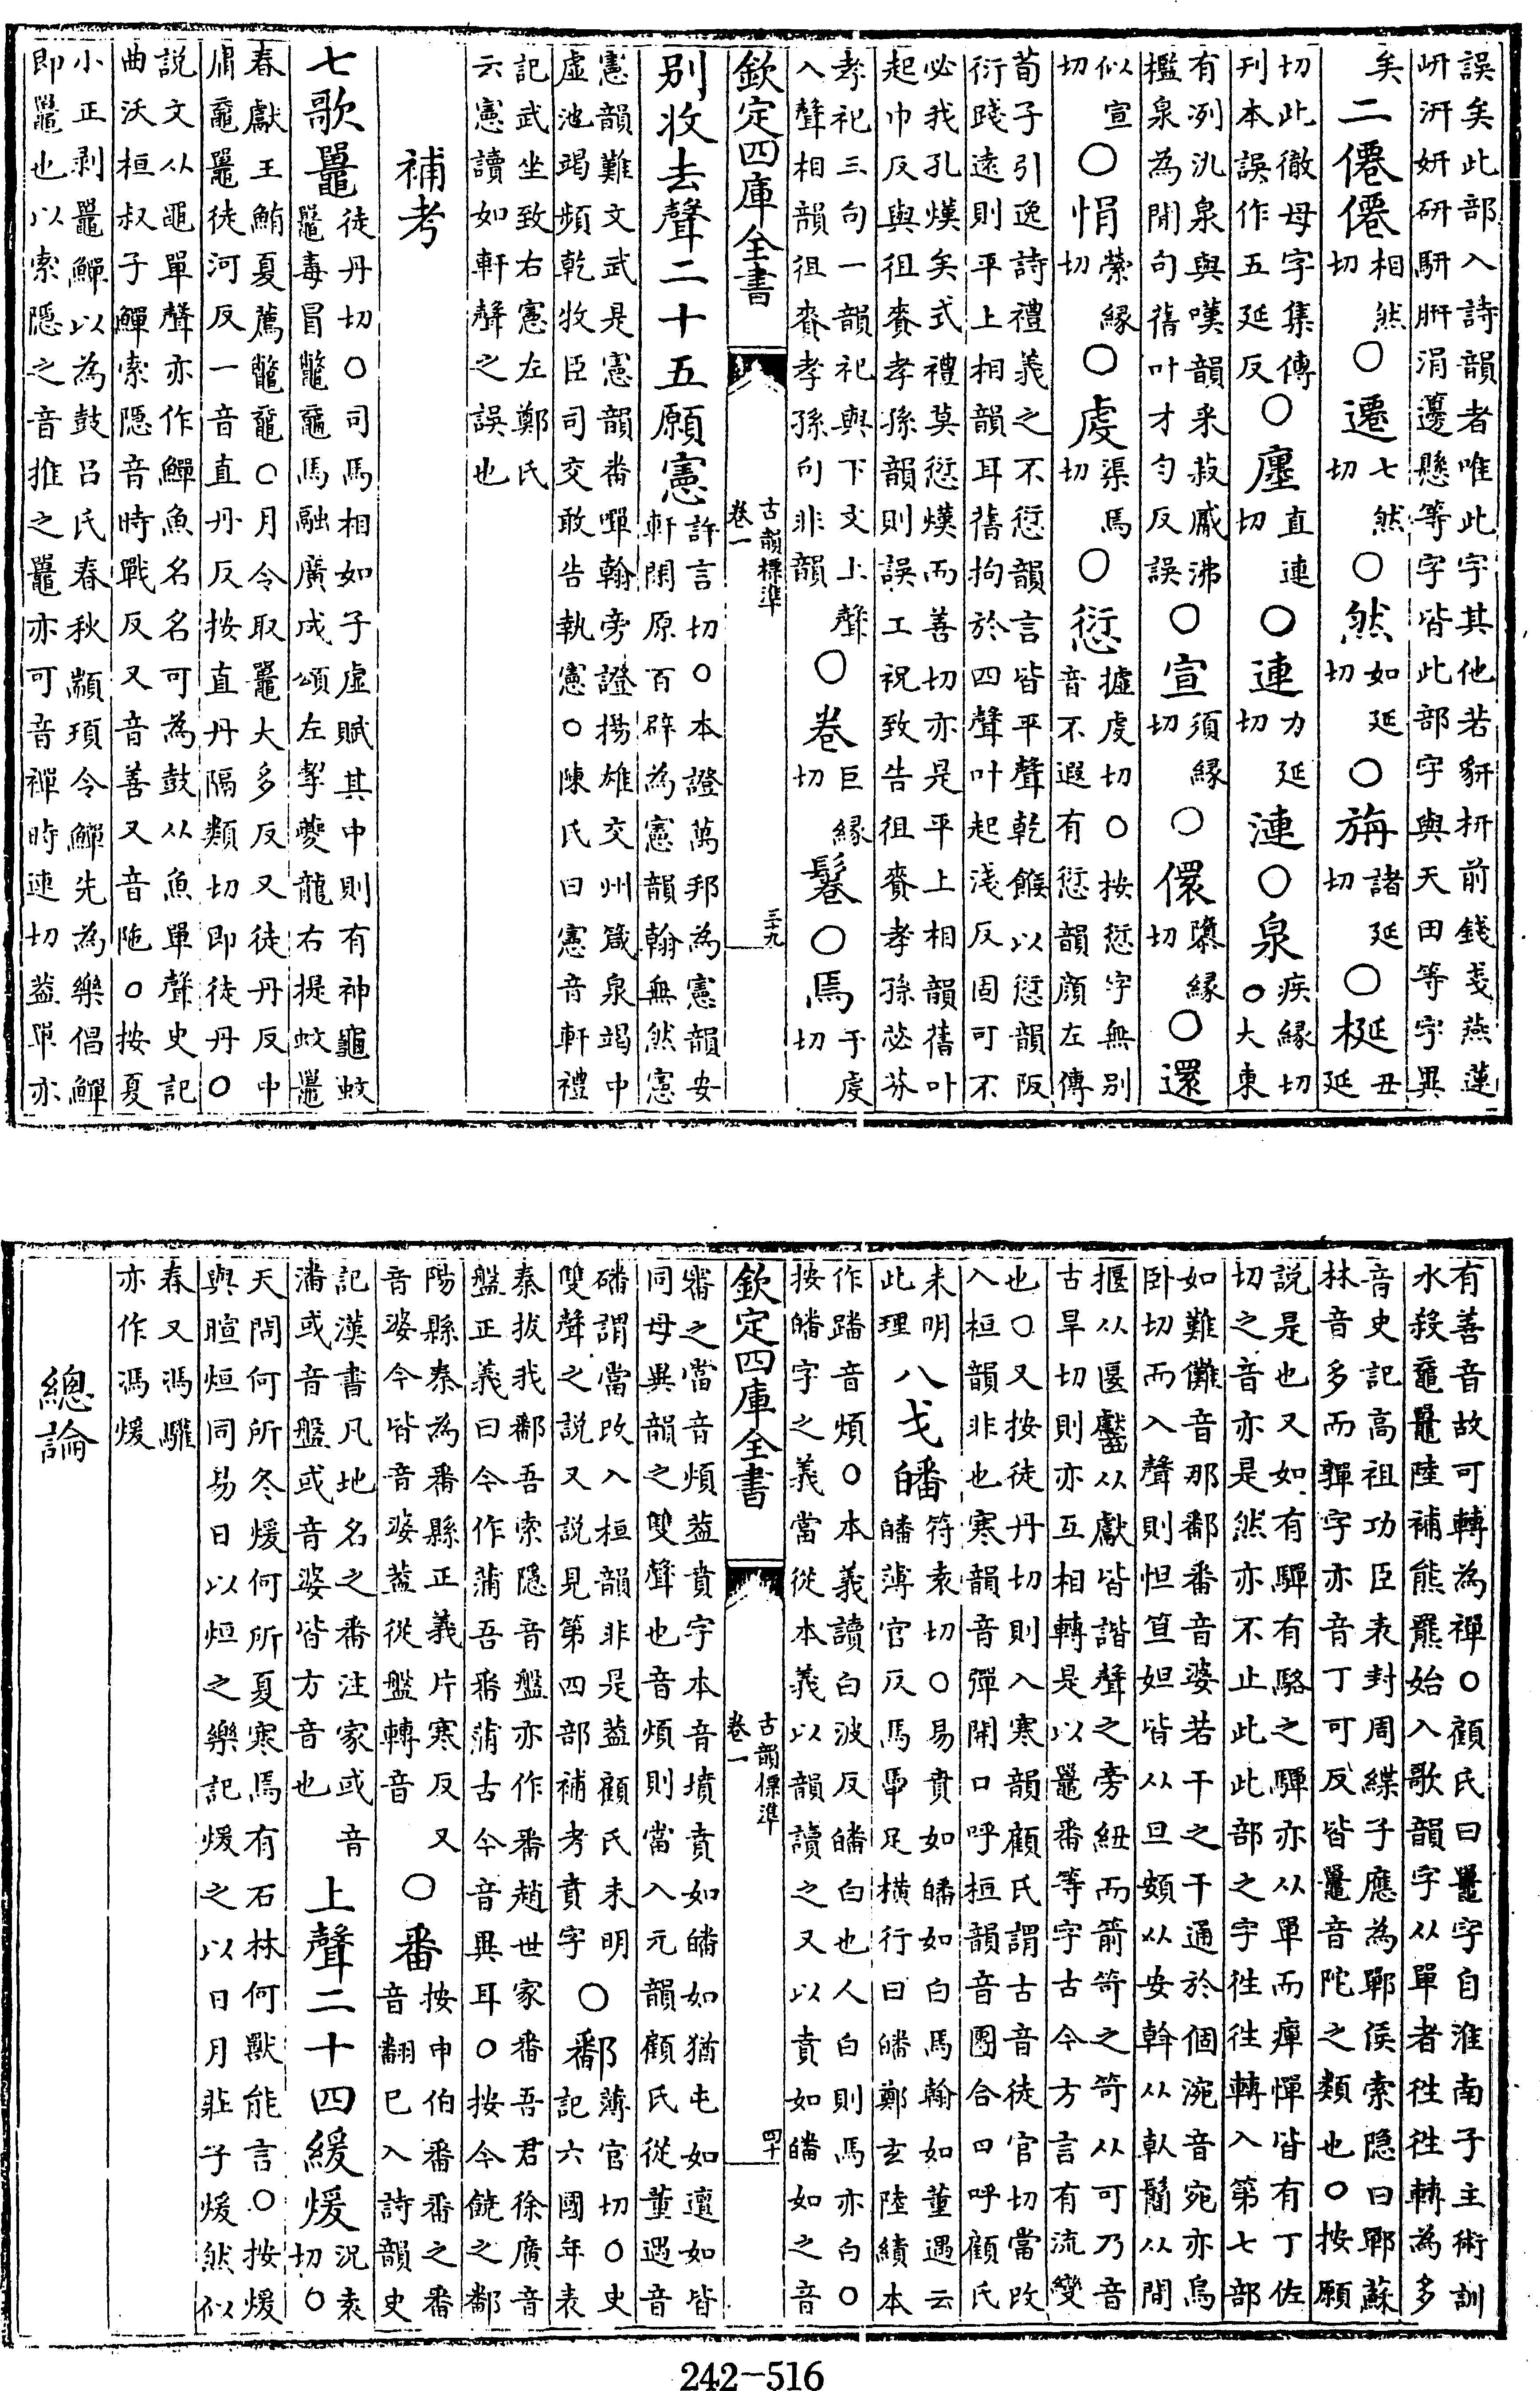 誤矣此部入詩韻者唯此字其他若豜枅前錢戔燕蓮
岍汧妍研騈胼涓邊懸等字皆此部字與天田等字異
矣二僊僊相然切○遷七然切○然如延切○旃諸延切○梴丑延
切此徹母字集傳刊本誤作五延反○廛直連切○連力延切漣○泉疾緣切○大東
有冽氿泉與嘆韻采菽觱沸檻泉為閒句舊叶才勻反誤○宣須緣切○儇隳緣切○還
似宣切○悁縈緣切○虔渠馬切○愆攄虔切○按愆字無別音不遐有愆韻顏左傳
荀子引逸詩禮義之不愆韻言皆平聲乾餱以愆韻阪
衍踐遠則平上相韻耳舊拘於四聲叶起淺反固可不
必我孔熯矣式禮莫愆熯而善切亦是平上相韻舊叶
起巾反與徂賚孝孫韻則誤工祝致告徂賚孝孫苾芬
孝祀三句一韻祀與下文上聲入聲相韻徂賚孝孫句非韻○卷巨緣切鬈○焉于虔切
欽定四庫全書
古韻標準
卷一
三十九
别收去聲二十五願憲許言切○本證萬邦為憲韻安軒閑原百辟為憲韻翰無然憲
憲韻難文武是憲韻番嘽翰旁證揚雄交州箴泉竭中
虛池竭頻乾牧臣司交敢告執憲○陳氏曰憲音軒禮
記武坐致右憲左鄭氏
云憲讀如軒聲之誤也
補考
七歌鼉徒丹切○司馬相如子虛賦其中則有神龜蚊鼉毒冒鼈黿馬融廣成頌左挈夔龍右提蛟鼉
春獻王鮪夏薦鼈黿○月令取鼉大多反又徒丹反中
庸黿鼉徒河反一音直丹反按直丹隔類切即徒丹○
說文从黽單聲亦作鱓魚名名可為鼓从魚單聲史記
曲沃桓叔子鱓索隱音時戰反又音善又音陁○按夏
小正剥鼉鱓以為鼓吕氏春秋顓頊令鱓先為樂倡鱓
即鼉也以索隱之音推之鼉亦可音禪時連切葢單亦
有善音故可轉為禪○顧氏曰鼉字自淮南子主術訓
水殺黿鼉陸補熊羆始入歌韻字从單者徃徃轉為多
音史記高祖功臣表封周緤子應為鄲侯索隱曰鄲蘇
林音多而驒字亦音丁可反皆鼉音陀之類也○按顧
說是也又如有驒有駱之驒亦从單而癉憚皆有丁佐
切之音亦是然亦不止此此部之字徃徃轉入第七部
如難儺音那鄱番音婆若干之干通於個涴音宛亦烏
卧切而入聲則怛笪妲皆从旦頞以安斡从倝鬜从閒
揠从匽齾从獻皆諧聲之旁紐而箭笴之笴从可乃音
古旱切則亦互相轉是以鼉番等字古今方言有流變
也○又按徒丹切則入寒韻顧氏謂古音徒官切當改
入桓韻非也寒韻音彈開口呼桓韻音團合口呼顧氏
未明此理八戈皤符袁切○易賁如皤如白馬翰如董遇云皤薄官反馬卑足橫行曰皤鄭玄陸績本
作蹯音煩○本義讀白波反皤白也人白則馬亦白○
按皤字之義當從本義以韻讀之又以賁如皤如之音
欽定四庫全書
古韻標準
卷一
四十
審之當音煩葢賁字本音墳賁如皤如猶屯如邅如皆
同母異韻之雙聲也音煩則當入元韻顧氏從董遇音
磻謂當改入桓韻非是葢顧氏未明雙聲之說又說見第四部補考賁字○鄱薄官切○史記六國年表
秦拔我鄱吾索隱音盤亦作番趙世家番吾君徐廣音
盤正義曰今作蒲吾番蒲古今音異耳○按今饒之鄱
陽縣秦為番縣正義片寒反又音婆今皆音婆葢從盤轉音○番按申伯番番之番音翻巳入詩韻史
記漢書凡地名之番注家或音潘或音盤或音婆皆方音也上聲二十四緩煖況袁切○
天問何所冬煖何所夏寒焉有石林何獸能言○按煖
與暄烜同易日以烜之樂記煖之以日月莊子煖然似
春又馮驩
亦作馮煖
總論
242-516